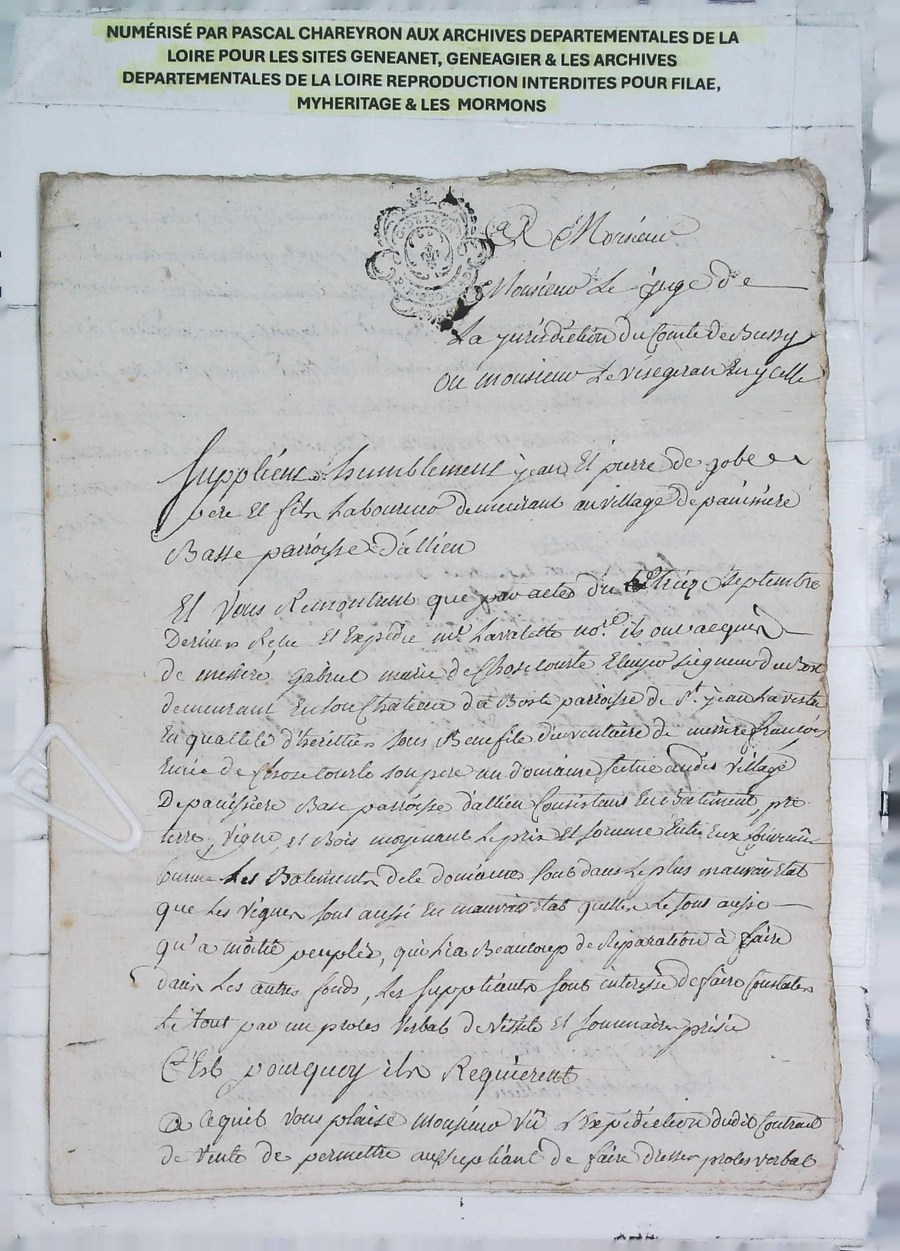 NUMÉRISÉ PAR PASCAL CHAREYRON AUX ARCHIVES DEPARTEMENTALES DE LA
LOIRE POUR LES SITES GENEANET, GENEAGIER & LES ARCHIVES
DEPARTEMENTALES DE LA LOIRE REPRODUCTION INTERDITES POUR FILAE,
MYHERITAGE & LES MORMONS
A Monsieur
Monsieur Le juge de
La jurisdiction du Comte de Bussy
ou monsieur Le viségeran En ycelle
Supplient humblement jean Et pierre de gobe
pere Et fils Laboureur demeurant au village de panissiere
Basse parroisse d'allieu
Et Vous Remontrent que par actes du treize Septembre
Dernier Relu Et Expedie me Lavalette nore. ils ont acquis
de messire gabriel marie de Chose courte Ecuyer seigneur du Bost
demeurant En son Chateau du Bost parroisse de St. jean La vestre
En quallité d'heritier sous Benefile d'inventaire de messire françois
de Chose courte son pere un domaine scitué audit village
De panissière Base parroisse d'allieu Consistant En Batiment, pré
terre, Vigne, et Bois moyenant Le prix Et somme Entre Eux
Comme Les Batiments de le domaines sont dans Le plus mauvais Etat
que Les vignes sont aussi En mauvais Etat quelles ne sont aussi
qu'a moitié peuplés, qu'il i a Beaucoup de Réparation à faire
dans Les autres fonds, Les suppliants sont intéressé de faire Constater
Le tout par un proles verbal de vissite Et sommaire prisée
C'Est pourquoy ils Requierent
A Cequil vous plaise monsieur vû L'Expédiction dudit Contrat
de Vente de permettre aux supliant de faire dresser proles verbal